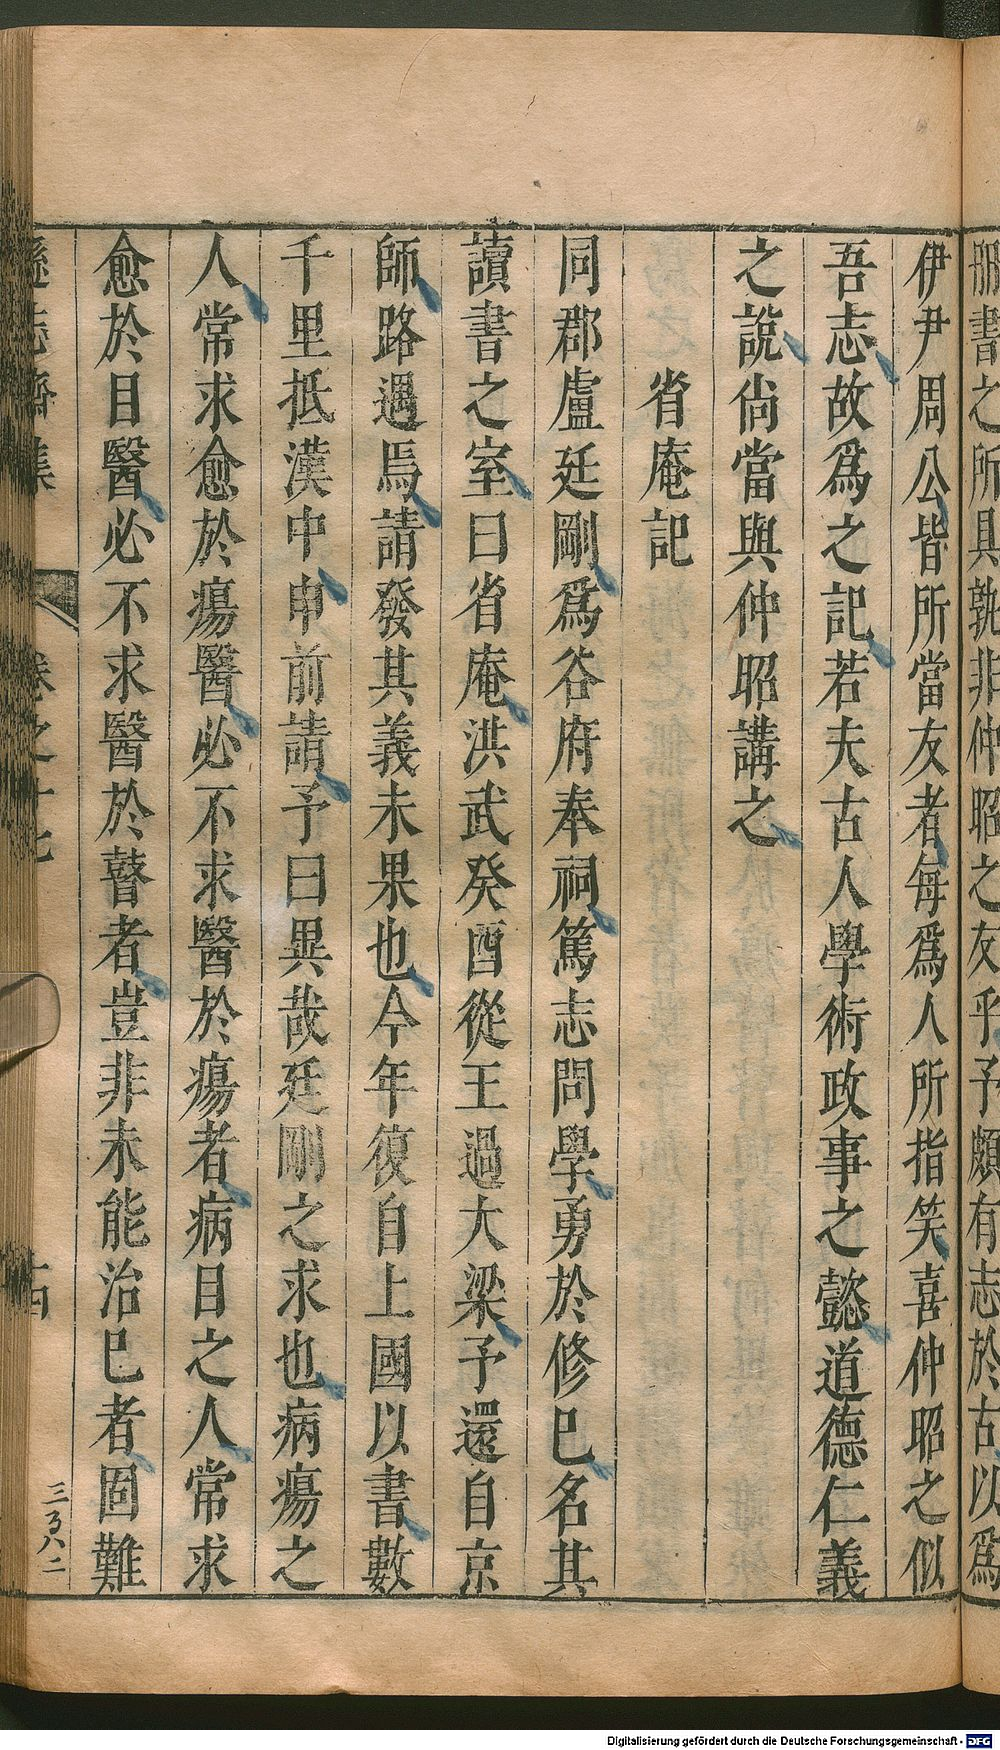 冊書之所具孰非仲昭之友乎予頗有志於古以爲
伊尹周公皆所當友者每爲人所指笑喜仲昭之似
吾志故爲之記若夫古人學術政事之懿道德仁義
之說尚當與仲昭講之
省庵記
同郡盧廷剛爲谷府奉祠篤志問學勇於修已名其
讀書之室曰省庵洪武癸酉從王過大梁予還自京
師路遇焉請發其義未果也今年復自上國以書數
千里抵漢中申前請予曰異哉廷剛之求也病瘍之
人常求愈於瘍醫必不求醫於瘍者病目之人常求
愈於目醫必不求醫於瞽者豈非未能治已者固難
遜志齋集 卷之十七 十四
三百八二
Digitalisierung gefördert durch die Deutsche Forschungsgemeinschaft - DFG